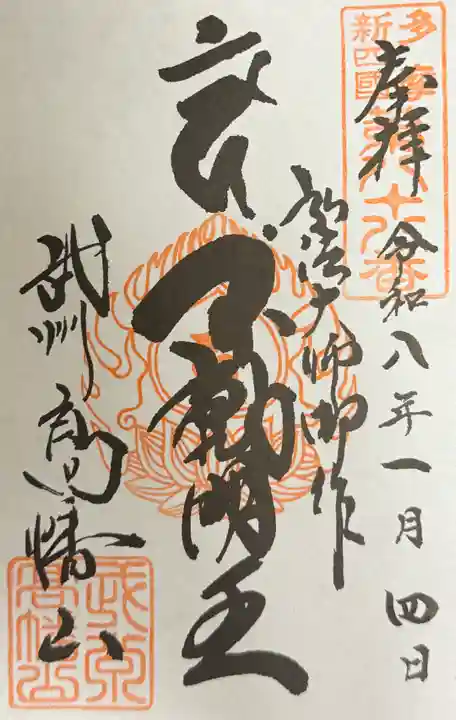 多摩
新四國
奉拝
令和八年一月四日
弘法大師御作
不動明王
武州 高幡山